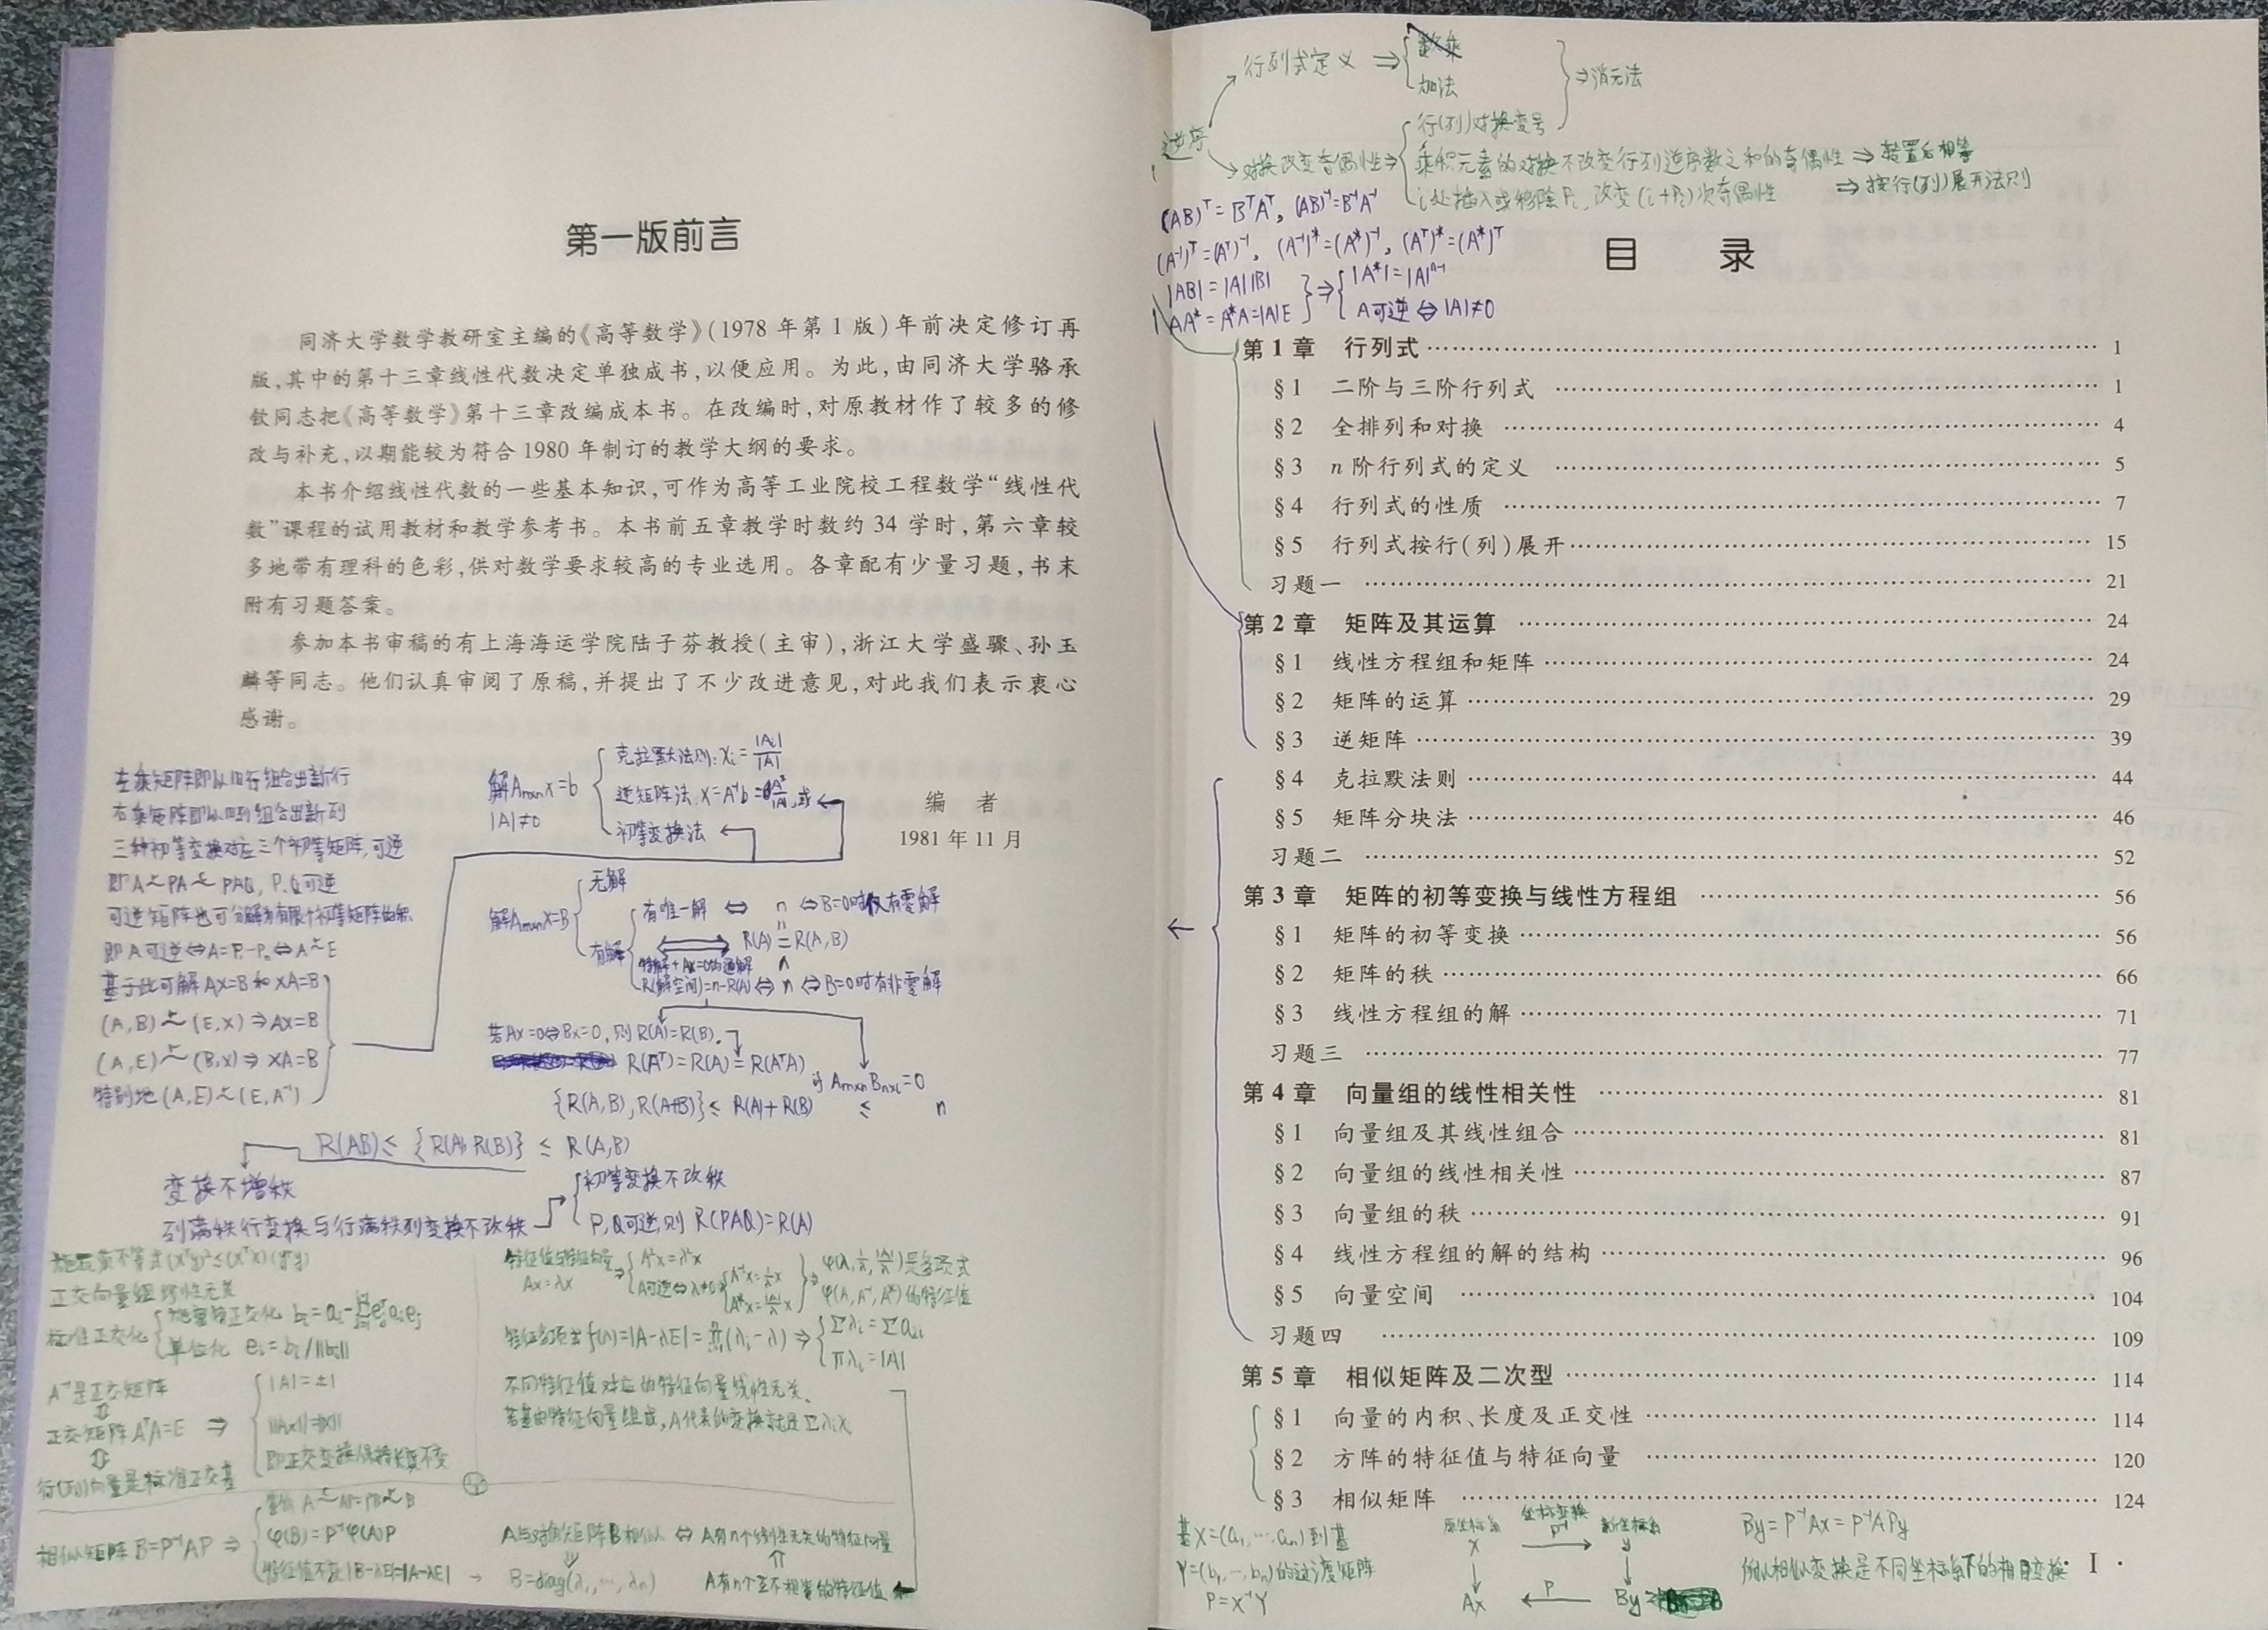 第一版前言
同济大学数学教研室主编的《高等数学》(1978 年第 1 版)年前决定修订再
版,其中的第十三章线性代数决定单独成书,以便应用。为此,由同济大学骆承
钦同志把《高等数学》第十三章改编成本书。在改编时,对原教材作了较多的修
改与补充,以期能较为符合 1980 年制订的教学大纲的要求。
本书介绍线性代数的一些基本知识,可作为高等工业院校工程数学“线性代
数”课程的试用教材和教学参考书。本书前五章教学时数约 34 学时,第六章较
多地带有理科的色彩,供对数学要求较高的专业选用。各章配有少量习题,书末
附有习题答案。
参加本书审稿的有上海海运学院陆子芬教授(主审),浙江大学盛骤、孙玉
麟等同志。他们认真审阅了原稿,并提出了不少改进意见,对此我们表示衷心
感谢。
编 者
1981 年 11 月
左乘矩阵即以旧行组合出新行
右乘矩阵即以旧列组合出新列
三种初等变换对应三个初等矩阵,可逆
即A~PA~PAQ, P,Q可逆
可逆矩阵也可分解为有限个初等矩阵的积
即A可逆⇔A=P₁…Pₙ⇔A~E
基于此可解AX=B和XA=B
(A,B)~(E,X)⇒AX=B
(A,E)~(B,X)⇒XA=B
特别地(A,E)~(E,A⁻¹)
解Aₘₓₙx=b
|A|≠0
克拉默法则:xᵢ=|Aᵢ|/|A|
逆矩阵法:x=A⁻¹b
或
初等变换法
解AₘₓₙX=B
无解
有解
有唯一解 ⇔ n ⇔B=0时仅有零解
R(A)=R(A,B)
特解+Ax=0的通解
R(解空间)=n-R(A)⇔ n ⇔B=0时有非零解
若Ax=0⇔Bx=0,则R(A)=R(B).
R(Aᵀ)=R(A)=R(AᵀA)
若AₘₓₙBₙₓₗ=0
{R(A,B),R(A+B)}≤R(A)+R(B) ≤ n
R(AB)≤{R(A),R(B)}≤R(A,B)
变换不增秩
列满秩行变换与行满秩列变换不改秩
初等变换不改秩
P,Q可逆,则R(PAQ)=R(A)
施瓦茨不等式(xᵀy)²≤(xᵀx)(yᵀy)
正交向量组线性无关
标准正交化
施密特正交化
单位化 eᵢ=bᵢ/||bᵢ||
A⁻¹是正交矩阵
⇕
正交矩阵AᵀA=E ⇒
⇕
行(列)向量是标准正交基
|A|=±1
||Ax||=||x||
即正交变换保持长度不变
特征值与特征向量
Ax=λx
A²x=λ²x
A可逆⇔λ≠0
A⁻¹x=1/λ x
A*x=|A|/λ x
φ(λ,1/λ,|A|/λ)是多项式
φ(A,A⁻¹,A*)的特征值
特征多项式f(λ)=|A-λE|=∏(λᵢ-λ)⇒
Σλᵢ=Σaᵢᵢ
∏λᵢ=|A|
不同特征值对应的特征向量线性无关.
若基由特征向量组成,A代表的变换就是Σλᵢxᵢ
相似矩阵B=P⁻¹AP ⇒
φ(B)=P⁻¹φ(A)P
特征值不变|B-λE|=|A-λE|
A与对角矩阵B相似 ⇔ A有n个线性无关的特征向量
B=diag(λ₁,…,λₙ)
A有n个互不相等的特征值
逆序
行列式定义 ⇒
数乘
加法
⇒消元法
对换改变奇偶性⇒
行(列)对换变号
乘积元素的对换不改变行列逆序数之和的奇偶性⇒转置后相等
i处插入或移除Pᵢ,改变(i+Pᵢ)次奇偶性 ⇒按行(列)展开法则
(AB)ᵀ=BᵀAᵀ, (AB)⁻¹=B⁻¹A⁻¹
(A⁻¹)ᵀ=(Aᵀ)⁻¹, (A⁻¹)*=(A*)⁻¹, (Aᵀ)*=(A*)ᵀ
|AB|=|A||B|
AA*=A*A=|A|E
⇒
|A*|=|A|ⁿ⁻¹
A可逆⇔|A|≠0
目 录
第 1 章 行列式 …… 1
§1 二阶与三阶行列式 …… 1
§2 全排列和对换 …… 4
§3 n 阶行列式的定义 …… 5
§4 行列式的性质 …… 7
§5 行列式按行(列)展开 …… 15
习题一 …… 21
第 2 章 矩阵及其运算 …… 24
§1 线性方程组和矩阵 …… 24
§2 矩阵的运算 …… 29
§3 逆矩阵 …… 39
§4 克拉默法则 …… 44
§5 矩阵分块法 …… 46
习题二 …… 52
第 3 章 矩阵的初等变换与线性方程组 …… 56
§1 矩阵的初等变换 …… 56
§2 矩阵的秩 …… 66
§3 线性方程组的解 …… 71
习题三 …… 77
第 4 章 向量组的线性相关性 …… 81
§1 向量组及其线性组合 …… 81
§2 向量组的线性相关性 …… 87
§3 向量组的秩 …… 91
§4 线性方程组的解的结构 …… 96
§5 向量空间 …… 104
习题四 …… 109
第 5 章 相似矩阵及二次型 …… 114
§1 向量的内积、长度及正交性 …… 114
§2 方阵的特征值与特征向量 …… 120
§3 相似矩阵 …… 124
基X=(a₁,…aₙ)到基
Y=(b₁,…,bₙ)的过渡矩阵
P=X⁻¹Y
原坐标系 坐标变换 新坐标系
x P⁻¹ y
Ax P By=
By=P⁻¹Ax=P⁻¹APy
所以相似变换是不同坐标系下的相同变换
· I ·